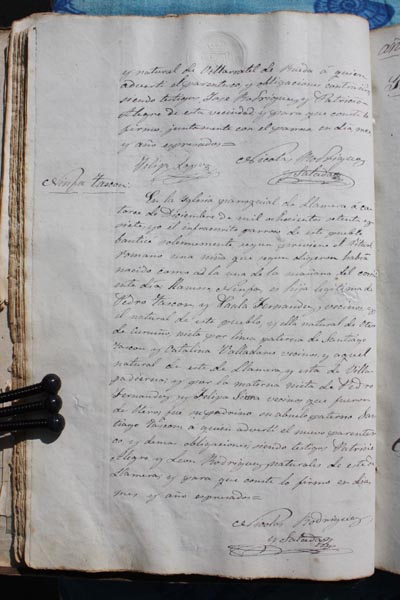 y natural de Villarratel de Rueda á quien
advertí el parentesco y obligaciones contraidas
siendo testigos Jose Rodriguez, y Patricio
Alegre de esta vecindad y para que conste lo
firmo, juntamente con el párroco en dia, mes
y año expresados=
Felipe Nicolás Rodriguez
Ninfa Tascon.
En la Iglesia parroquial de Llamera á ca-
torce de Diciembre de mil ochocientos setenta y
siete, yo el infrascrito párroco de este pueblo
bauticé solemnemente, segun previene el Ritual
romano una niña que segun dijeron habia
nacido como á la una de la mañana del
dia, llamose Ninfa, es hija legítima de
Pedro Tascon, y Paula Fernandez, vecinos y
él natural de este pueblo, y ella natural de
nieta por linea paterna de Santiago
Tascon y Catalina Valladares vecinos, y aquel
natural de este de Llamera, y esta de Villa
y por la materna nieta de Pedro
Fernandez y Felipa vecinos que fueron
de fue su padrino su abuelo paterno San-
tiago Tascon á quien advertí el parentes-
co, y demas obligaciones, siendo testigos Patricio
Alegre y Leon Rodriguez, naturales de este de
Llamera; y para que conste lo firmo en dia,
mes, y año expresados=
Nicolás Rodriguez